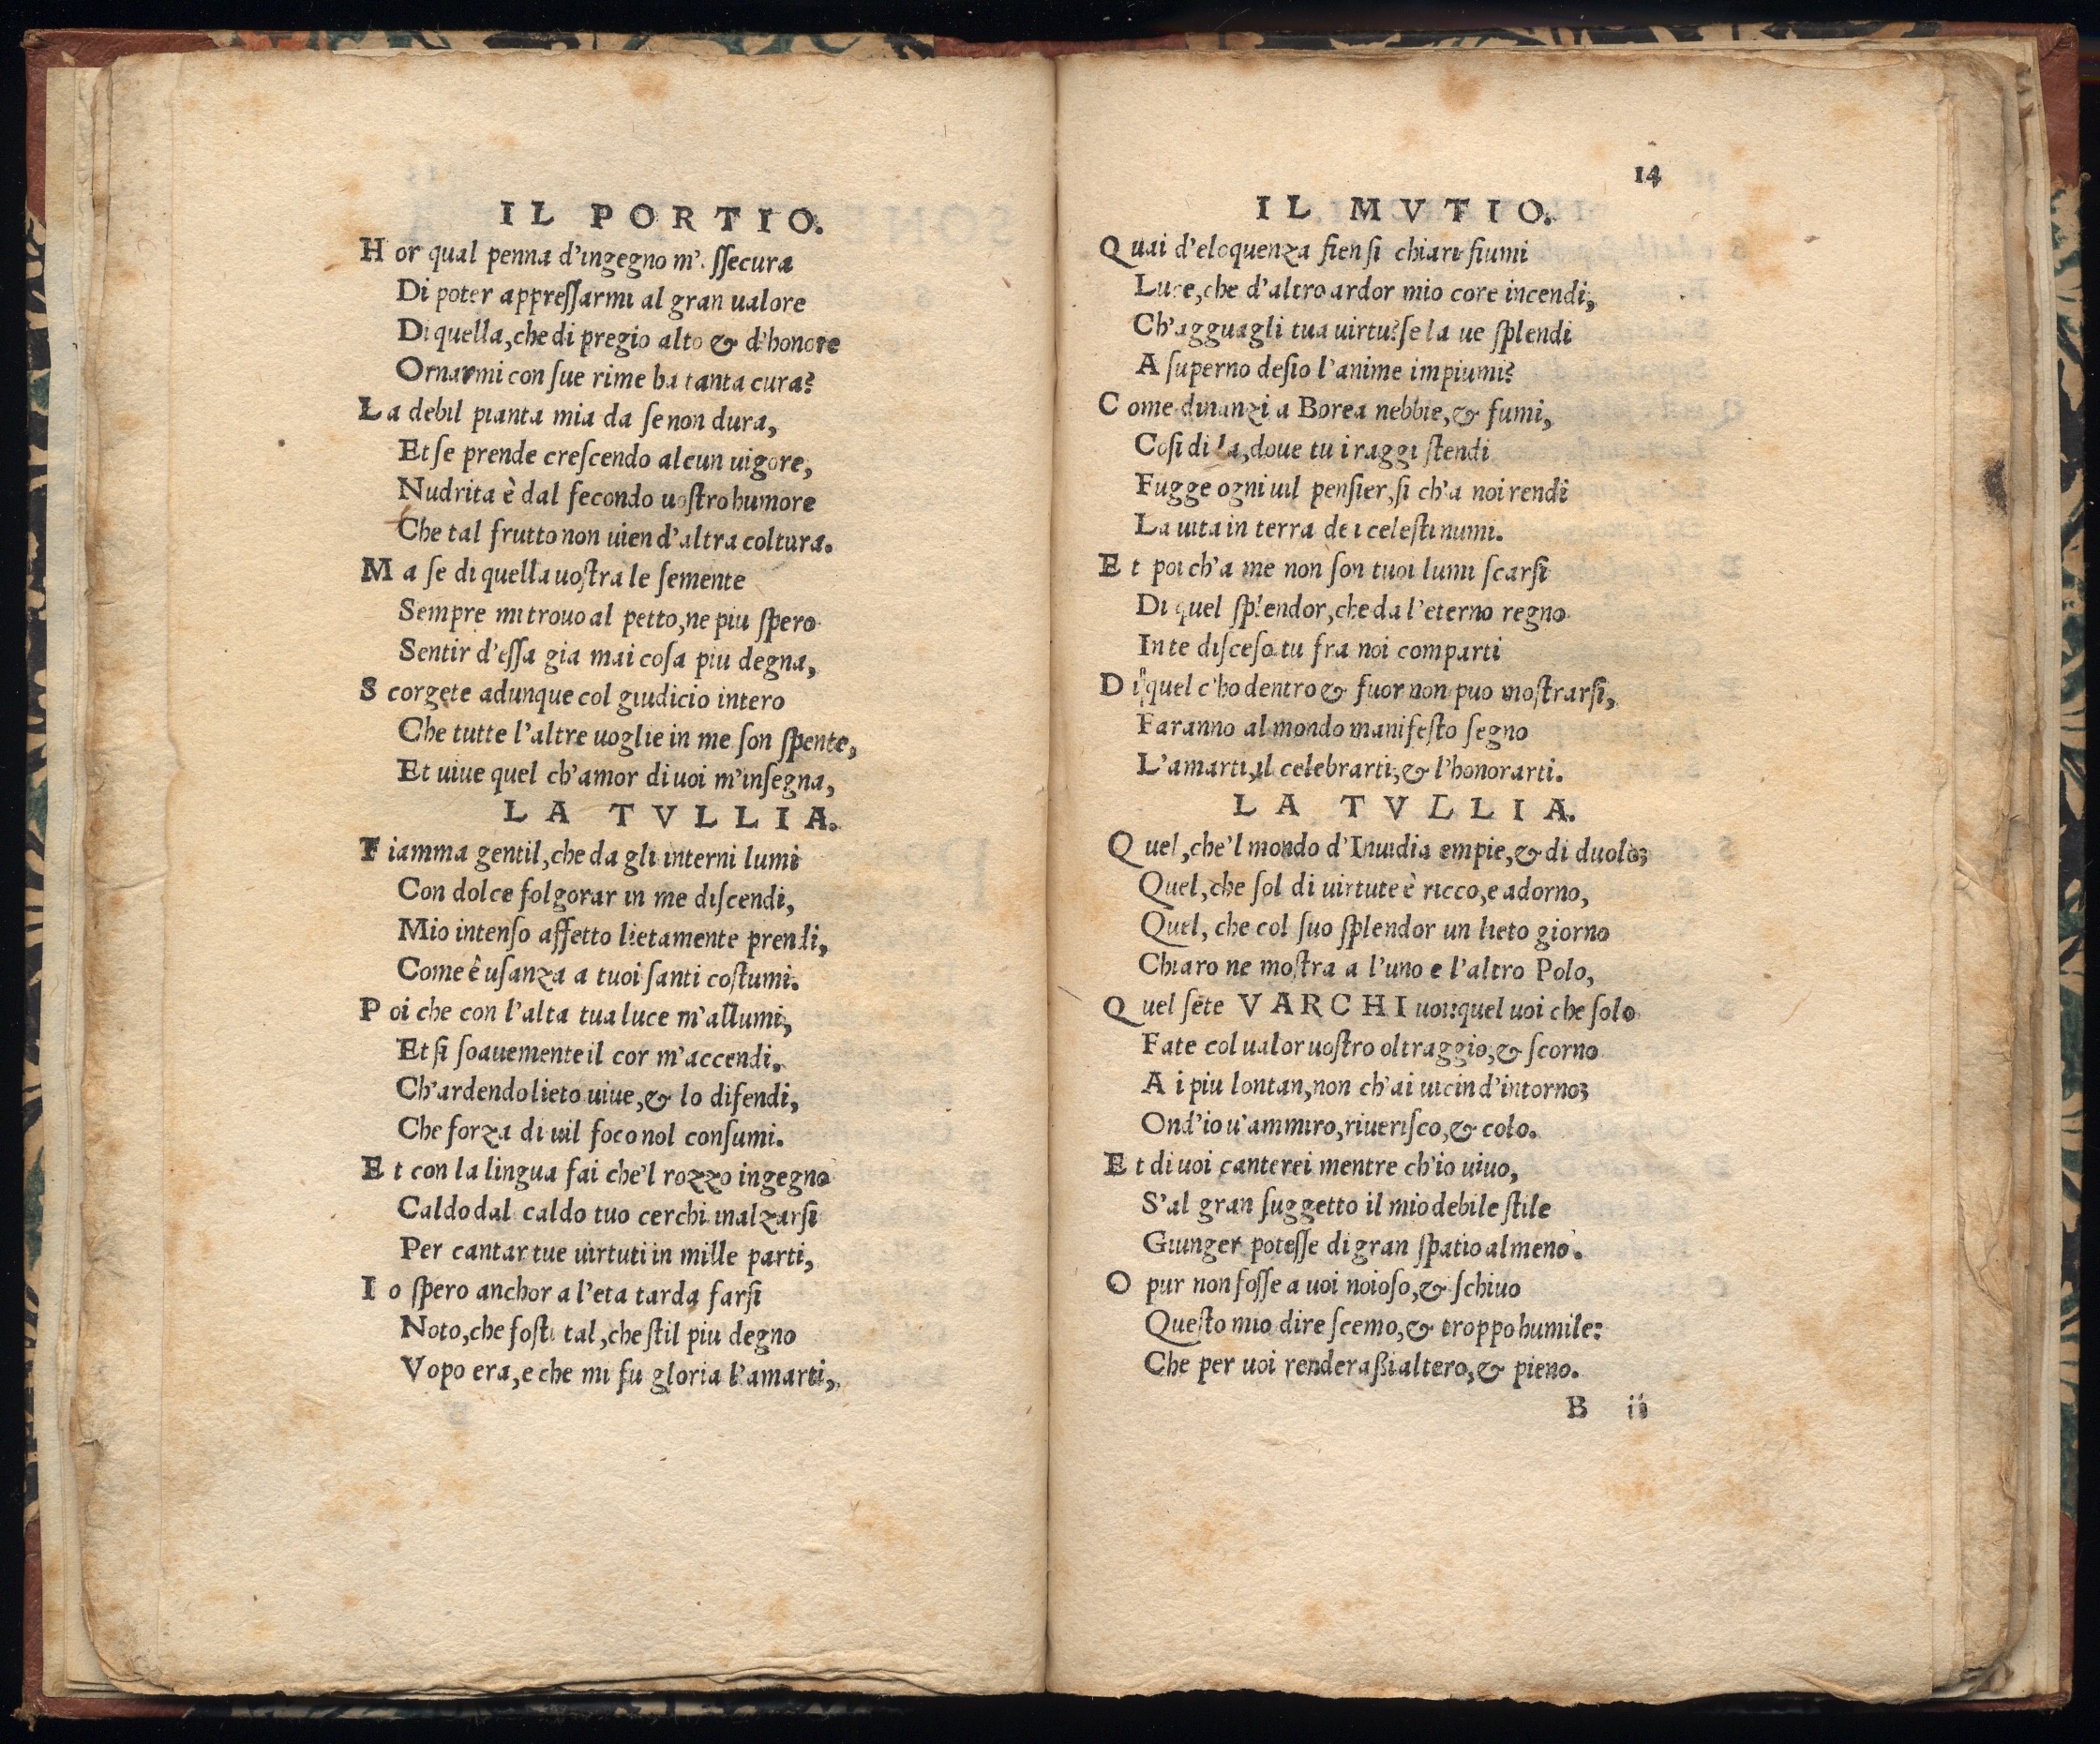 IL PORTIO.
Hor qual penna d'ingegno m' ſſecura
Di poter appreſſarmi al gran ualore
Di quella, che di pregio alto & d'honore
Ornarmi con ſue rime ha tanta cura?
La debil pianta mia da ſe non dura,
Et ſe prende creſcendo alcun uigore,
Nudrita è dal fecondo uoſtro humore
Che tal frutto non uien d'altra coltura.
Ma ſe di quella uoſtra le ſemente
Sempre mi trouo al petto, ne piu ſpero
Sentir d'eſſa gia mai coſa piu degna,
Scorgete adunque col giudicio intero
Che tutte l'altre uoglie in me ſon ſpente,
Et uiue quel ch'amor di uoi m'inſegna,
LA TVLLIA.
Fiamma gentil, che da gli interni lumi
Con dolce folgorar in me diſcendi,
Mio intenſo affetto lietamente prendi,
Come è uſanza a tuoi ſanti coſtumi.
Poi che con l'alta tua luce m'allumi,
Et ſi ſoauemente il cor m'accendi,
Ch'ardendo lieto uiue, & lo difendi,
Che forza di uil foco nol conſumi.
Et con la lingua fai che'l rozzo ingegno
Caldo dal caldo tuo cerchi inalzarſi
Per cantar tue uirtuti in mille parti,
Io ſpero anchor a l'eta tarda farſi
Noto, che foſti tal, che ſtil piu degno
Vopo era, e che mi fu gloria l'amarti,
14
IL MVTIO.
Quai d'eloquenza fien ſi chiari fiumi
Luce, che d'altro ardor mio core incendi,
Ch'agguagli tua uirtu? ſe la ue ſplendi
A ſuperno deſio l'anime impiumi?
Come dinanzi a Borea nebbie, & fumi,
Coſi di la, doue tu i raggi ſtendi
Fugge ogni uil penſier, ſi ch'a noi rendi
La uita in terra de i celeſti numi.
Et poi ch'a me non ſon tuoi lumi ſcarſi
Di quel ſplendor, che da l'eterno regno
In te diſceſo tu fra noi comparti
Di quel c'ho dentro & fuor non puo moſtrarſi,
Faranno al mondo manifeſto ſegno
L'amarti, il celebrarti, & l'honorarti.
LA TVLLIA.
Quel, che'l mondo d'Inuidia empie, & di duolo;
Quel, che ſol di uirtute è ricco, e adorno,
Quel, che col ſuo ſplendor un lieto giorno
Chiaro ne moſtra a l'uno e l'altro Polo,
Quel ſete VARCHI uoi: quel uoi che ſolo
Fate col ualor uoſtro oltraggio, & ſcorno
A i piu lontan, non ch'ai uicin d'intorno;
Ond'io u'ammiro, riueriſco, & colo.
Et di uoi canterei mentre ch'io uiuo,
S'al gran ſuggetto il mio debile ſtile
Giunger poteſſe di gran ſpatio almeno.
O pur non foſſe a uoi noioſo, & ſchiuo
Queſto mio dire ſcemo, & troppo humile:
Che per uoi renderaßi altero, & pieno.
B ii